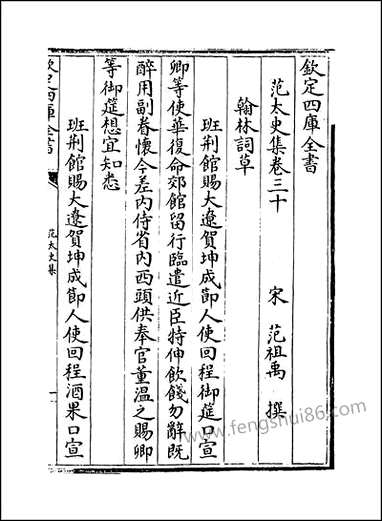 欽定四庫全書
范太史集卷三十
宋 范祖禹 撰
翰林詞草
班荆館賜大遼賀坤成節人使回程御筵口宣
卿等使華復命郊館留行臨遣近臣特伸飲餞勿辭既
醉用副眷懷今差内侍省内西頭供奉官董温之賜卿
等御筵想宜知悉
班荆館賜大遼賀坤成節人使回程酒果口宣
欽定四庫全書
范太史集
一
www.fengshui86.com